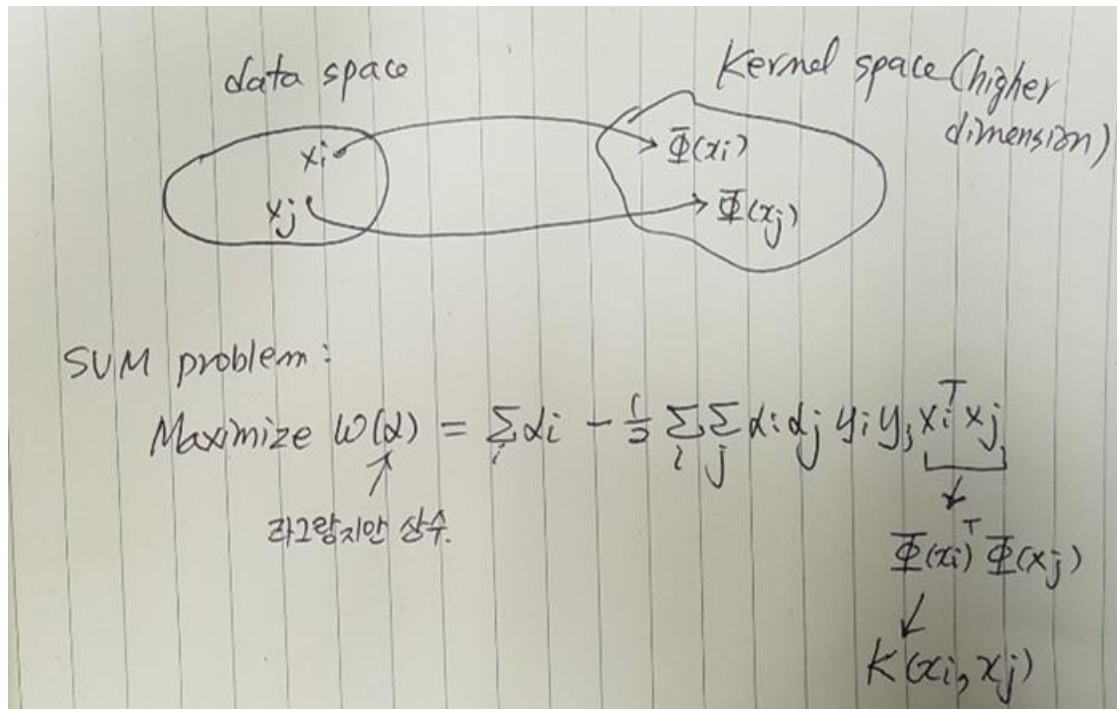 data space
Kernel space (higher
dimension)
xi
Φ(xi)
xj
Φ(xj)
SVM problem:
Maximize W(α) = Σi αi - 1/2 Σi Σj αi αj yi yj xiᵀxj
라그랑지안 상수.
Φ(xi)ᵀ Φ(xj)
K(xi, xj)